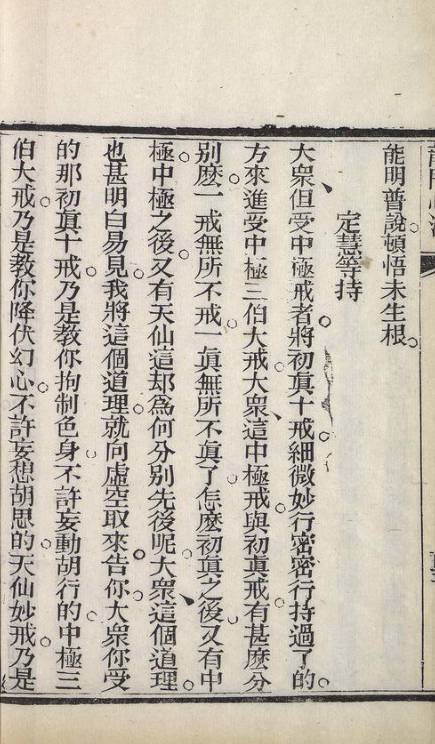 能明普說頓悟未生根。
定慧等持
大衆但受中極戒者將初眞十戒細微妙行密密行持過了的。
方來進受中極三伯大戒大衆、這中極戒與初眞戒。有甚麽分
別麽。一戒無所不戒一眞無所不眞了。怎麽初眞之後。又有中
極中極之後。又有天仙。這却爲何分别先後呢。大衆、這個道理。
也甚明白易見。我將這個道理。就向虛空取來吿你。大衆你受
的那初眞十戒。乃是教你拘制色身。不許妄動胡行的。中極三
伯大戒乃是教你降伏幻心。不許妄想胡思的。天仙妙戒。乃是